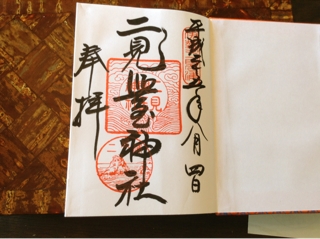 平成二十五年八月四日
二見興玉神社
奉拝